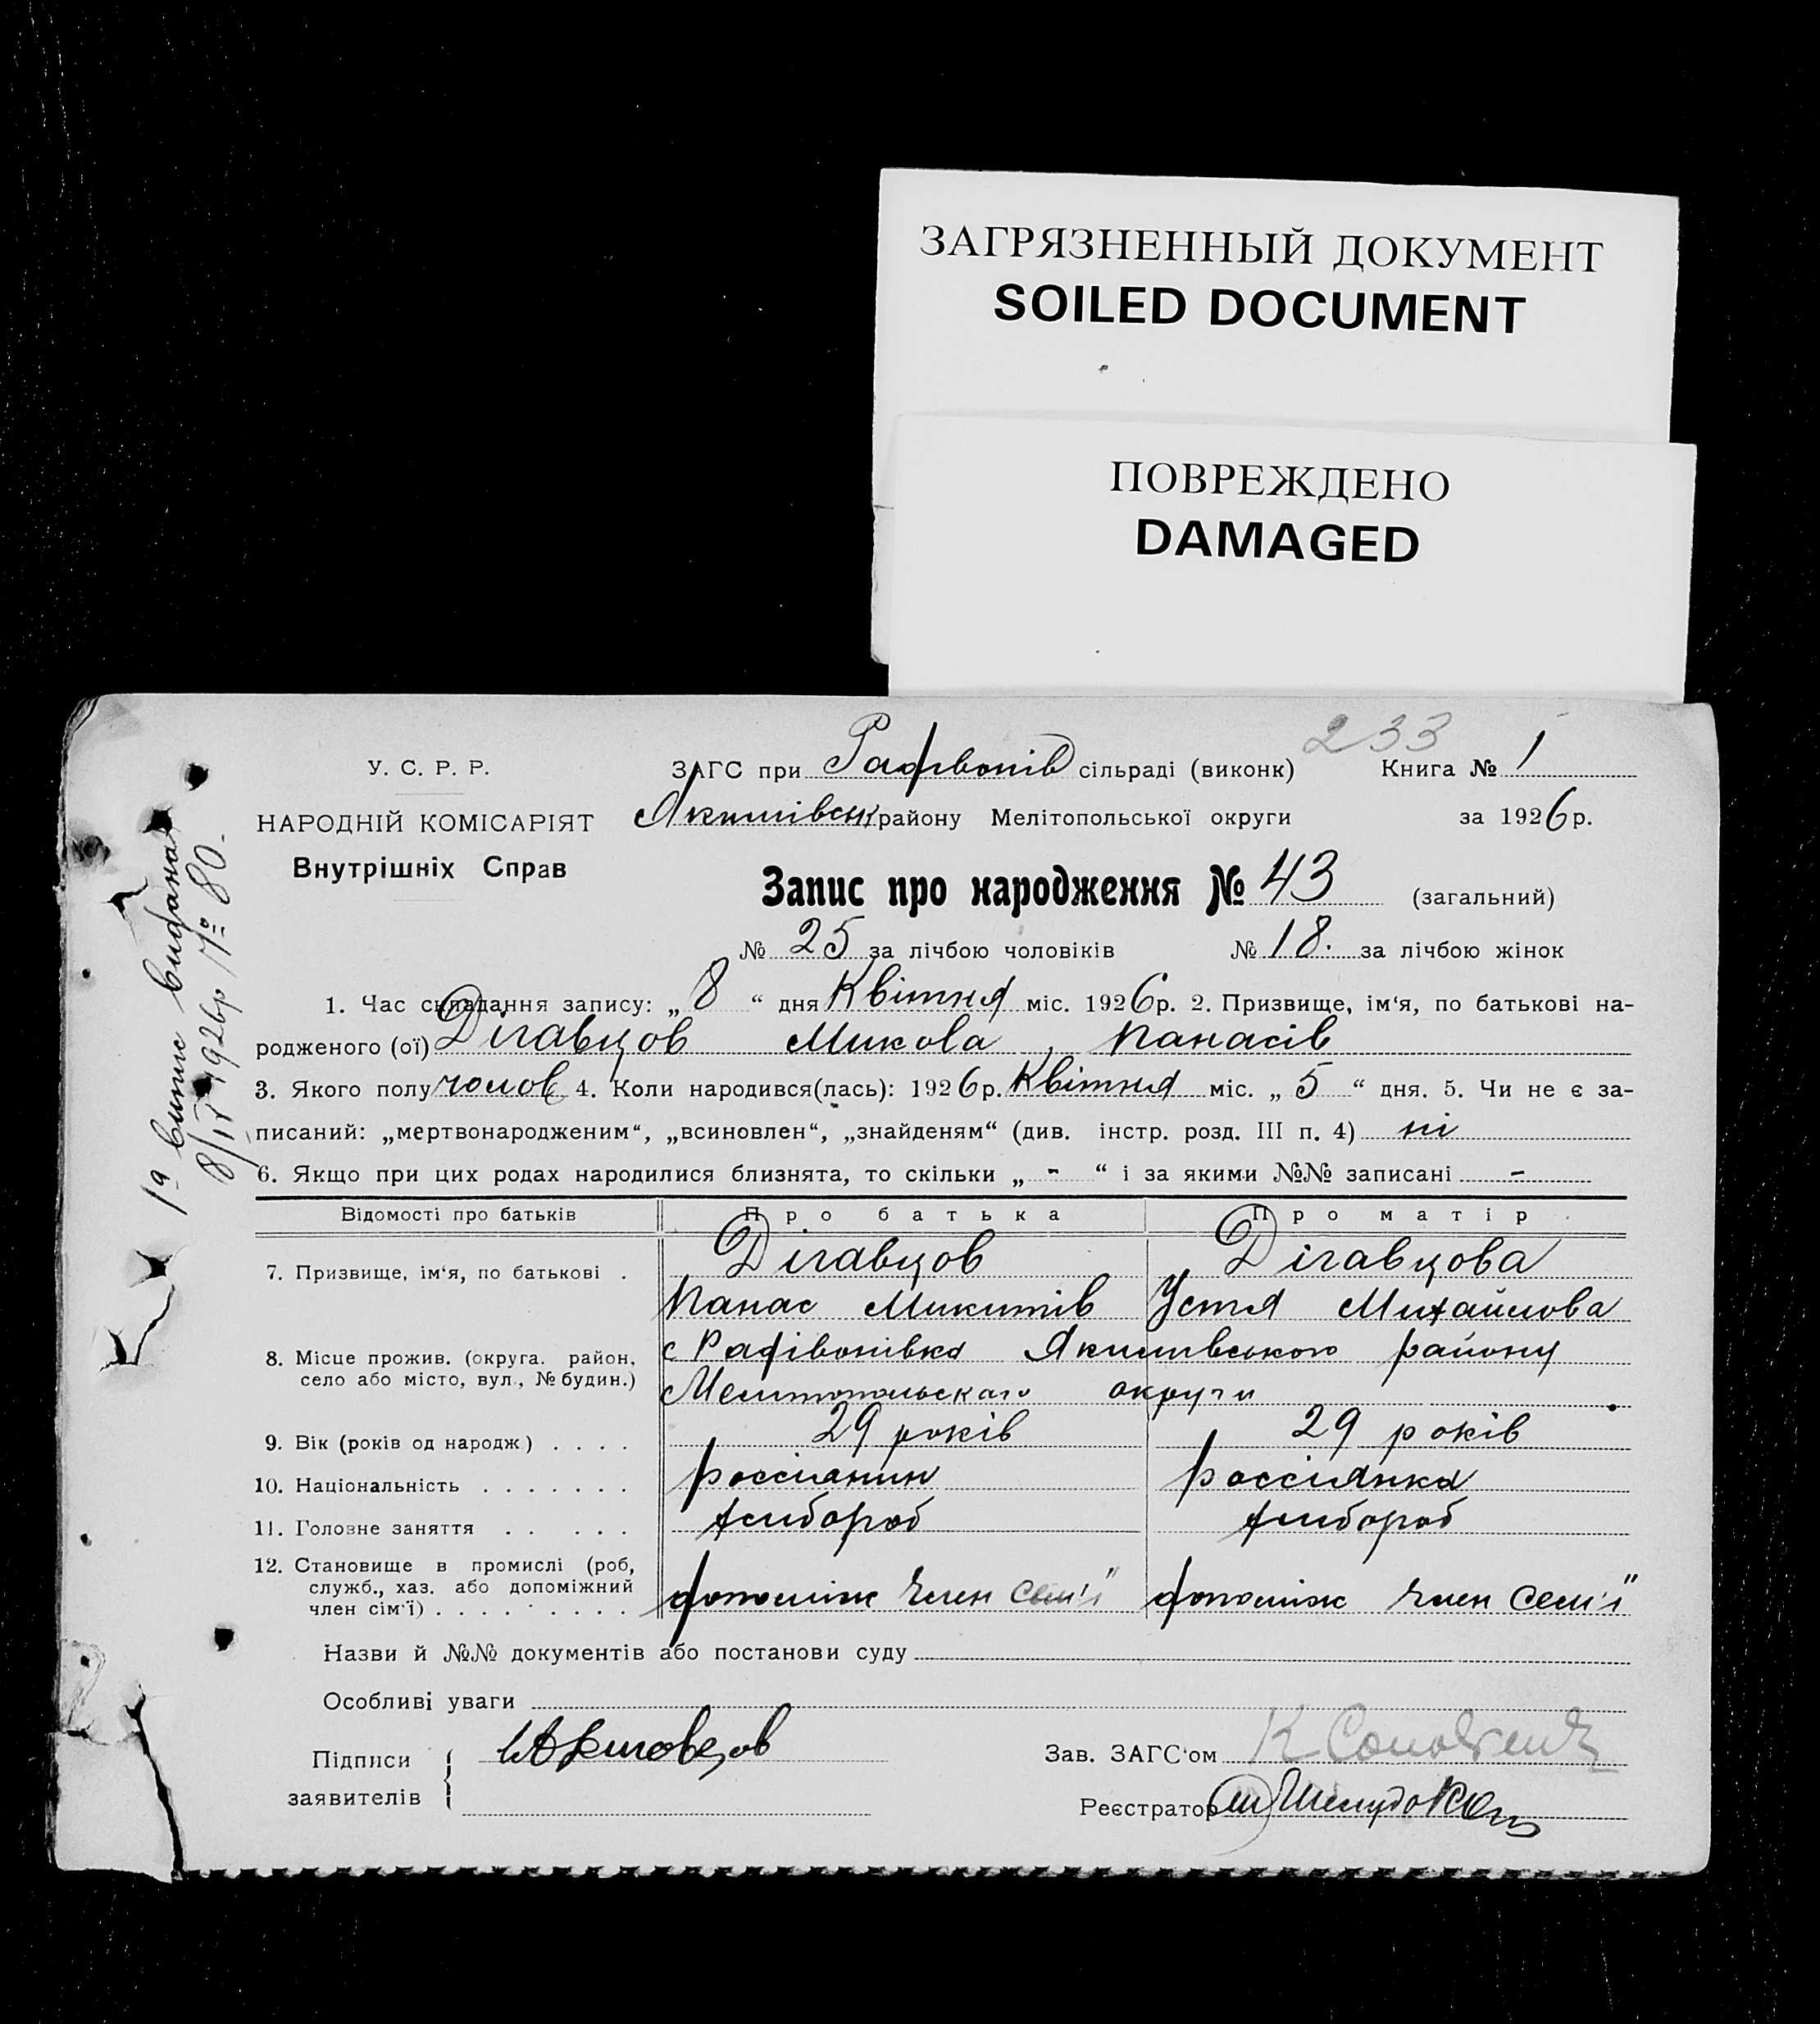 ЗАГРЯЗНЕННЫЙ ДОКУМЕНТ
SOILED DOCUMENT
ПОВРЕЖДЕНО
DAMAGED
233
У. С. Р. Р.
ЗАГС при Рафівонів сільраді (виконк) Книга № 1
НАРОДНІЙ КОМІСАРІЯТ
Якимівськ району Мелітопольської округи за 1926 р.
Внутрішніх Справ
Запис про народження № 43 (загальний)
№ 25 за лічбою чоловіків № 18. за лічбою жінок
1. Час складання запису: „ 8 “ дня Квітня міс. 1926 р. 2. Призвище, ім‘я, по батькові на-
родженого (ої) Дігавцов Микола Панасів
3. Якого полу чолов 4. Коли народився(лась): 1926 р. Квітня міс. „ 5 “ дня. 5. Чи не є за-
писаний: „мертвонародженим“, „всиновлен“, „знайденям“ (див. інстр. розд. III п. 4) ні
6. Якщо при цих родах народилися близнята, то скільки „ - “ і за якими №№ записані -
1а випис видана
8/IV 1926р № 80.
Відомості про батьків Про батька Про матір
7. Призвище, ім‘я, по батькові . Дігавцов Дігавцова
Панас Микитів Устя Михайлова
8. Місце прожив. (округа. район, с Рафівонівка Якимівського району
село або місто, вул., № будин.) Мелитопольскаго округи
9. Вік (років од народж) . . . . 29 років 29 років
10. Національність . . . . . . . россіянин россіянка
11. Головне заняття . . . . . хлибороб хлибороб
12. Становище в промислі (роб,
служб., хаз. або допоміжний
член сім‘ї) . . . . . . . . . допоміж член семʼї допоміж член семʼї
Назви й №№ документів або постанови суду
Особливі уваги
Підписи
заявителів
Зав. ЗАГС‘ом
Реєстратор